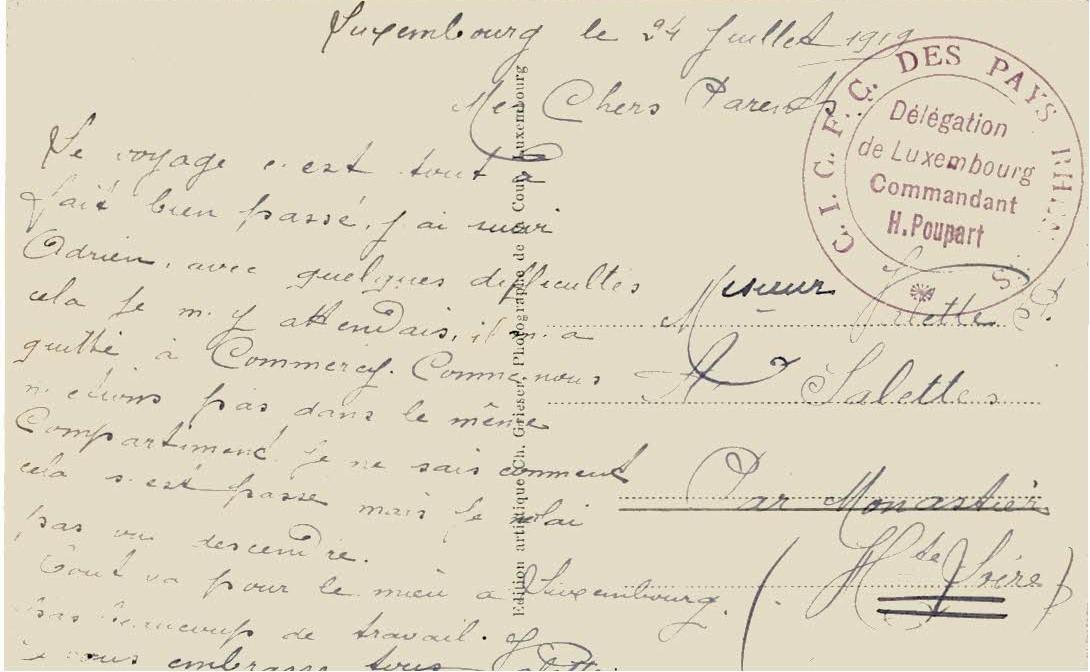 Luxembourg le 24 Juillet 1919
Me Chers Parents
Le voyage c'est tout à
fait bien passé, j'ai suivi
Adrien, avec quelques difficultés
cela je m'y attendais, il m'a
quitté à Commercy. Comme nous
n'étions pas dans le même
Compartiment je ne sais comment
cela s'est passé mais je l'ai
pas vu descendre.
Tout va pour le mieu a Luxembourg.
pas beaucoup de travail.
vous embrasse tous
Edition artistique Ch. Griesen, Photographe de la Cour, Luxembourg
C. I. C. F. C. DES PAYS RHEN S
Délégation
de Luxembourg
Commandant
H. Poupart
Monsieur Villette P.
A Salettes
Par Monastier
(Hte Loire)